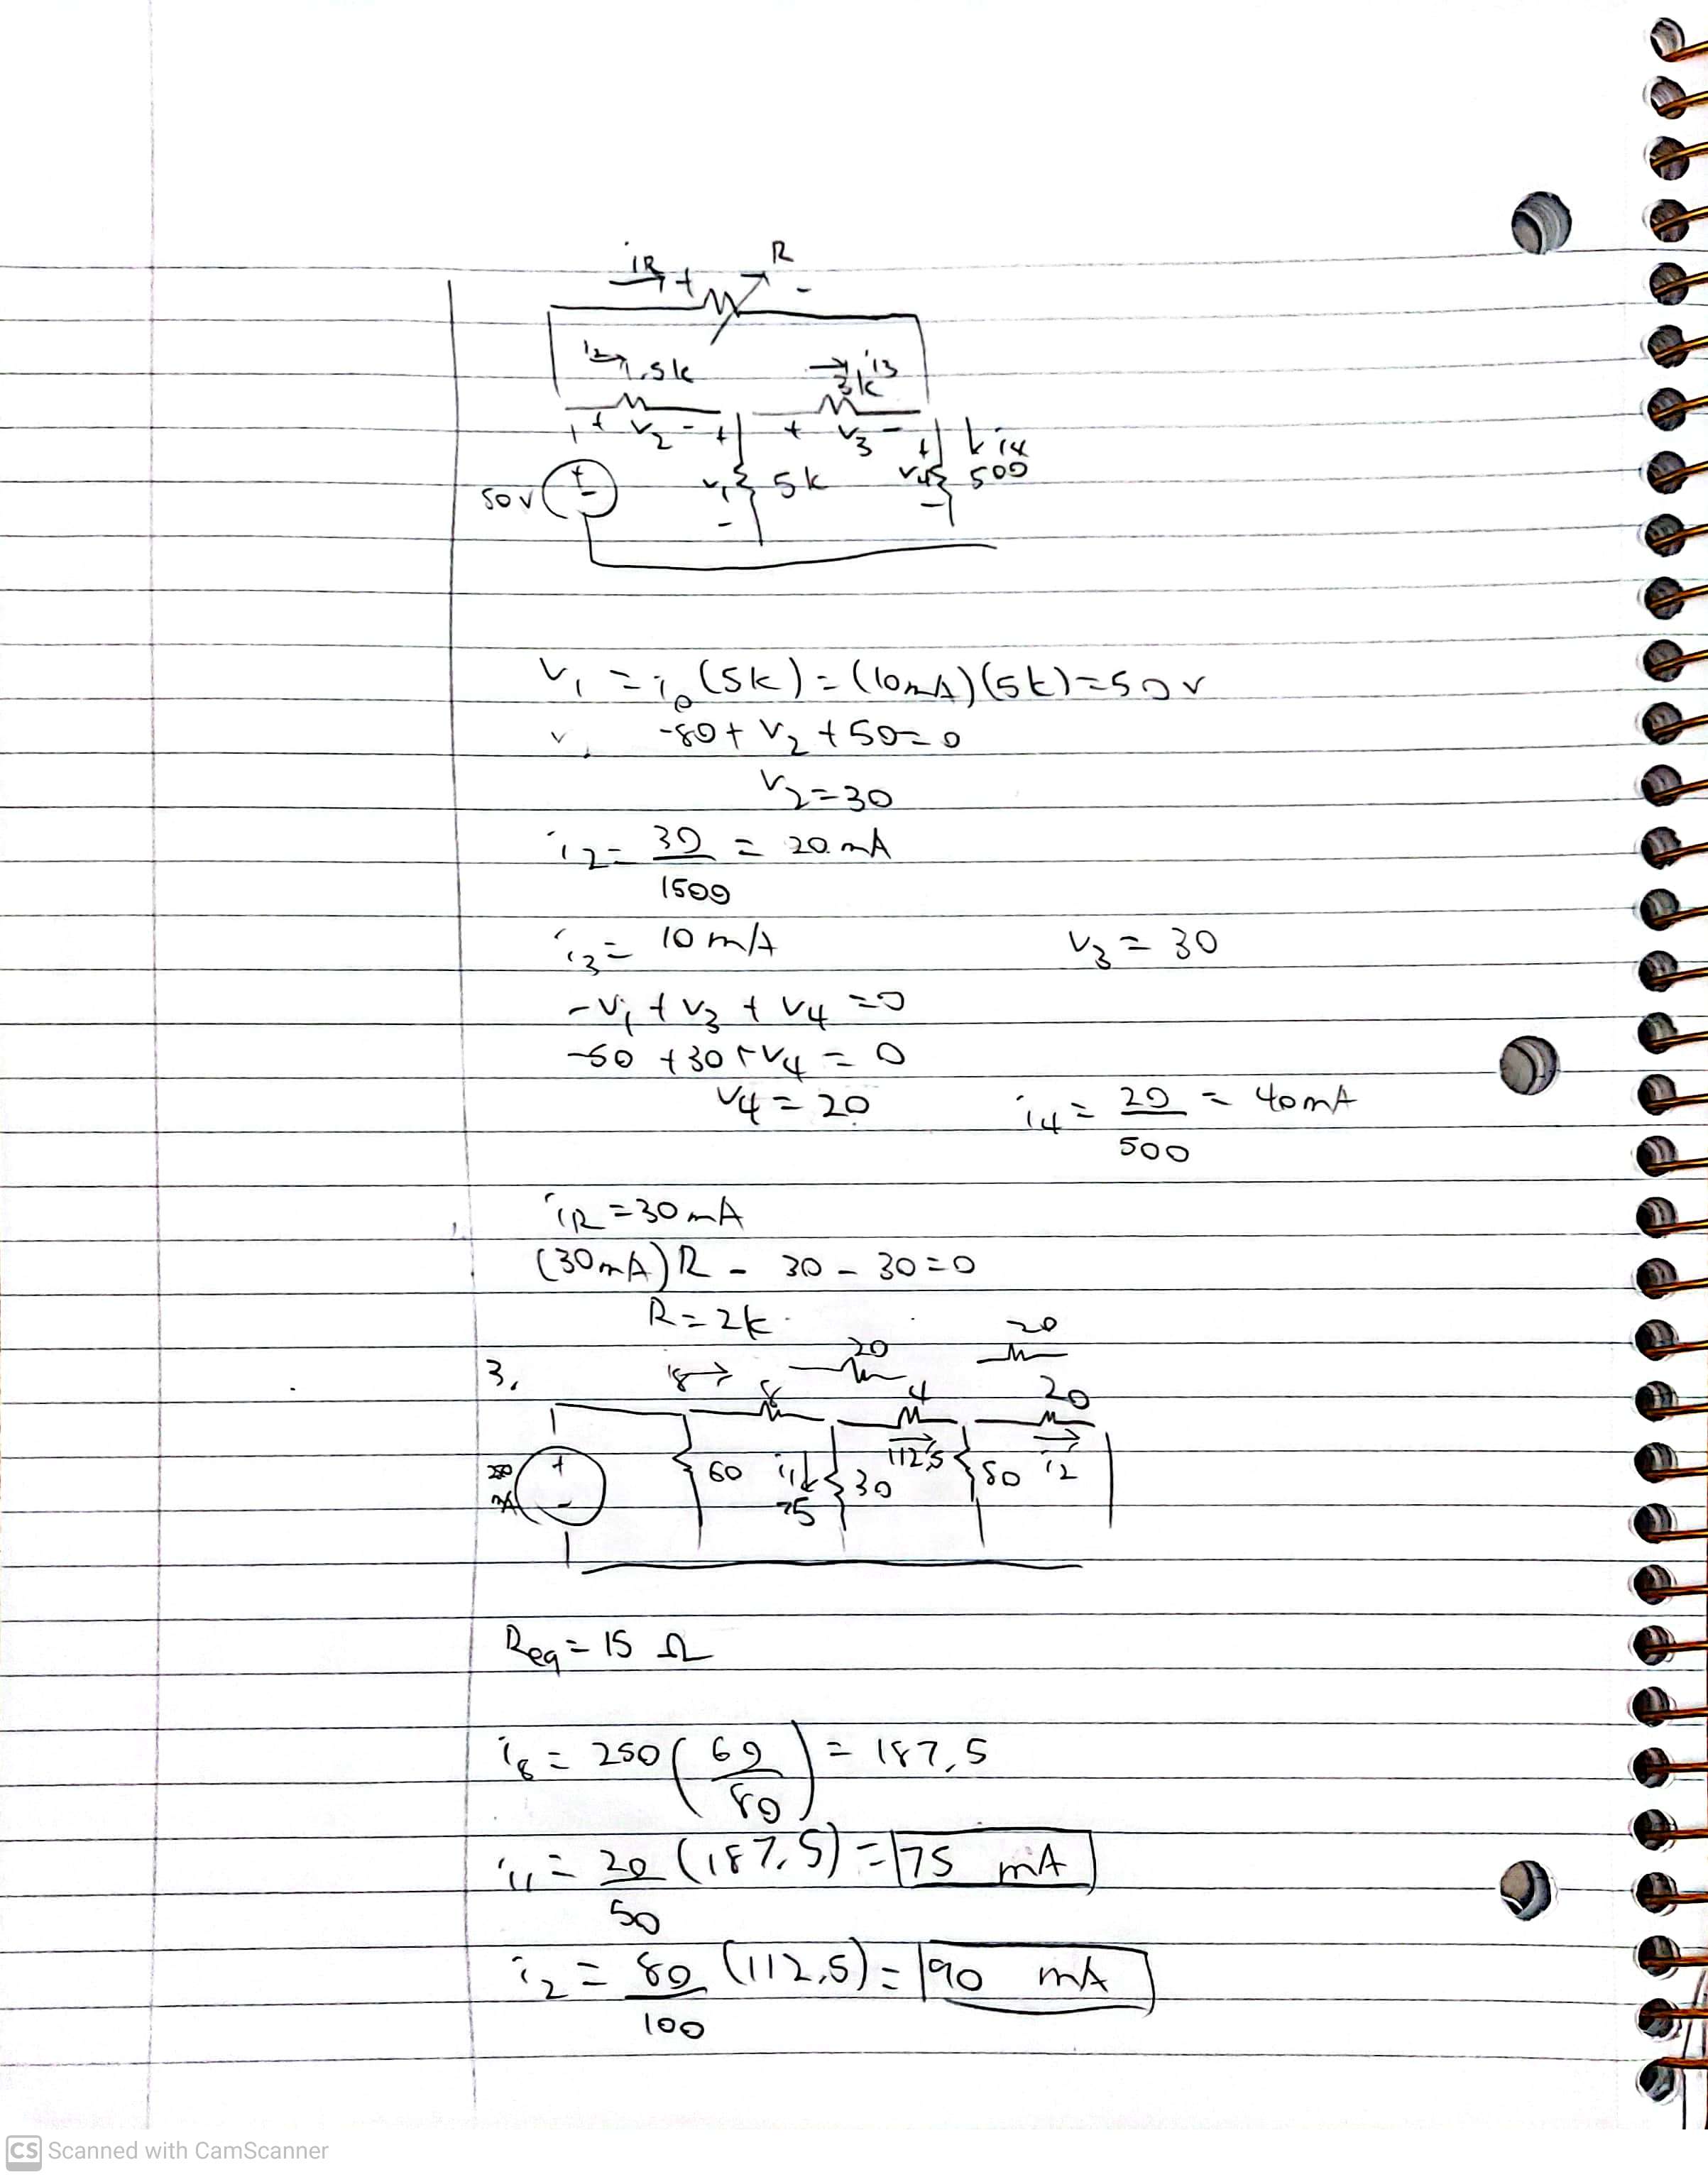 iR + R -
i2 1.5k i3 3k
+ v2 - + + v3 - + i4
50v + - v1 5k v4 500
- -
v1 = i0 (5k) = (10mA)(5k) = 50v
v -80 + v2 + 50 = 0
v2 = 30
i2 = 30/1500 = 20 mA
i3 = 10 mA v3 = 30
-v1 + v3 + v4 = 0
-50 + 30 + v4 = 0
v4 = 20 i4 = 20/500 = 40mA
iR = 30mA
(30mA)R - 30 - 30 = 0
R = 2k
20
20
3. i8 8 4 20
250 mA + - 60 i1 75 30 112,5 80 i2
Req = 15 Ω
i8 = 250 (60/80) = 187,5
i1 = 20/50 (187.5) = 75 mA
i2 = 80/100 (112,5) = 90 mA
CS Scanned with CamScanner